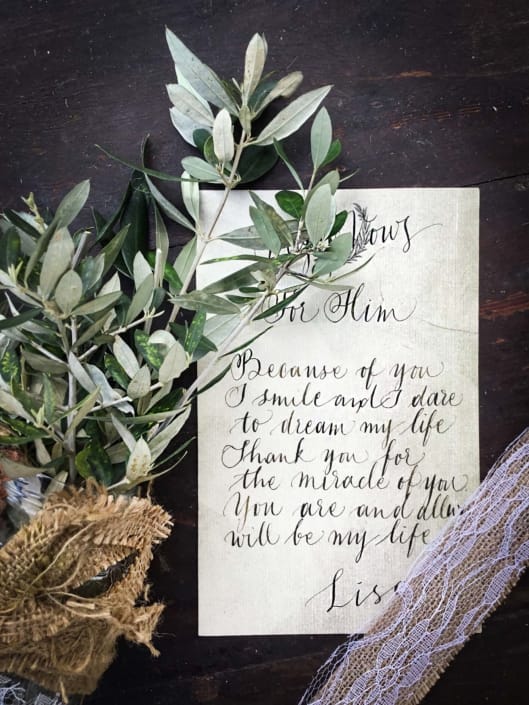 Vows
For Him
Because of you
I smile and I dare
to dream my life
Thank you for
the miracle of you
You are and allw
will be my life
Lisa